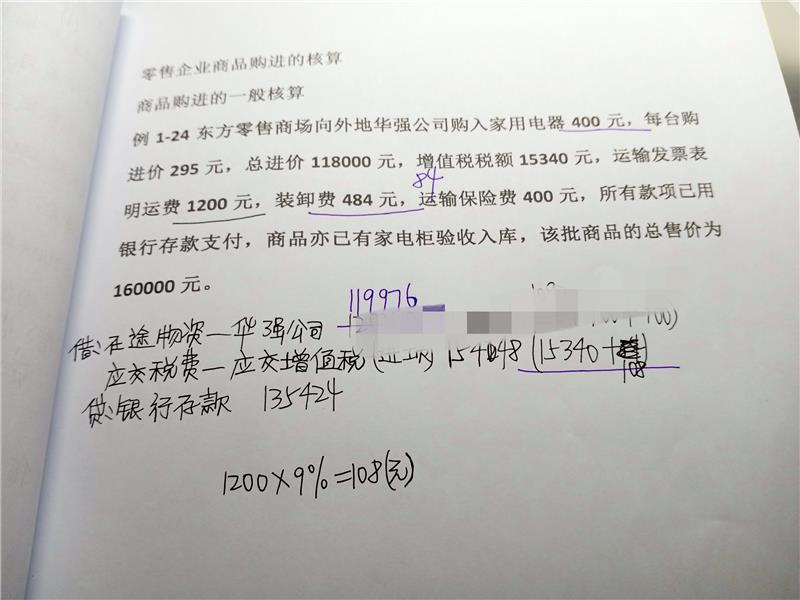 零售企业商品购进的核算
商品购进的一般核算
例 1-24 东方零售商场向外地华强公司购入家用电器 400 元，每台购
进价 295 元，总进价 118000 元，增值税税额 15340 元，运输发票表
84
明运费 1200 元，装卸费 484 元，运输保险费 400 元，所有款项已用
银行存款支付，商品亦已有家电柜验收入库，该批商品的总售价为
160000 元。
119976
借：在途物资—华强公司
应交税费—应交增值税(进项) 15448 (15340+
108
贷：银行存款 135424
1200×9%=108(元)